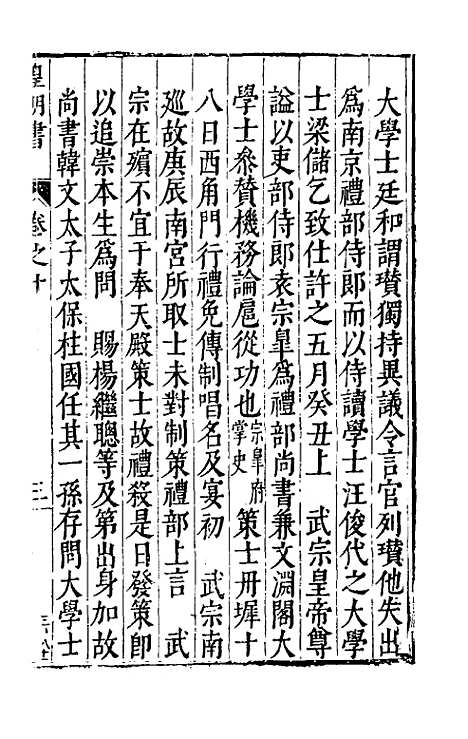 大學士廷和謂瓚獨持異議令言官列瓚他失出
爲南京禮部侍郎而以侍讀學士汪俊代之大學
士梁儲乞致仕許之五月癸丑上 武宗皇帝尊
諡以吏部侍郎袁宗皐爲禮部尚書兼文淵閣大
學士叅贊機務論扈從功也宗皐府掌史 策士丹墀十
八日西角門行禮免傳制唱名及宴初 武宗南
廵故庚辰南宮所取士未對制策禮部上言 武
宗在殯不宜于奉天殿策士故禮殺是日發策即
以追崇本生爲問 賜楊繼聰等及第出身加故
尚書韓文太子太保柱國任其一孫存問大學士
皇明書 卷之十